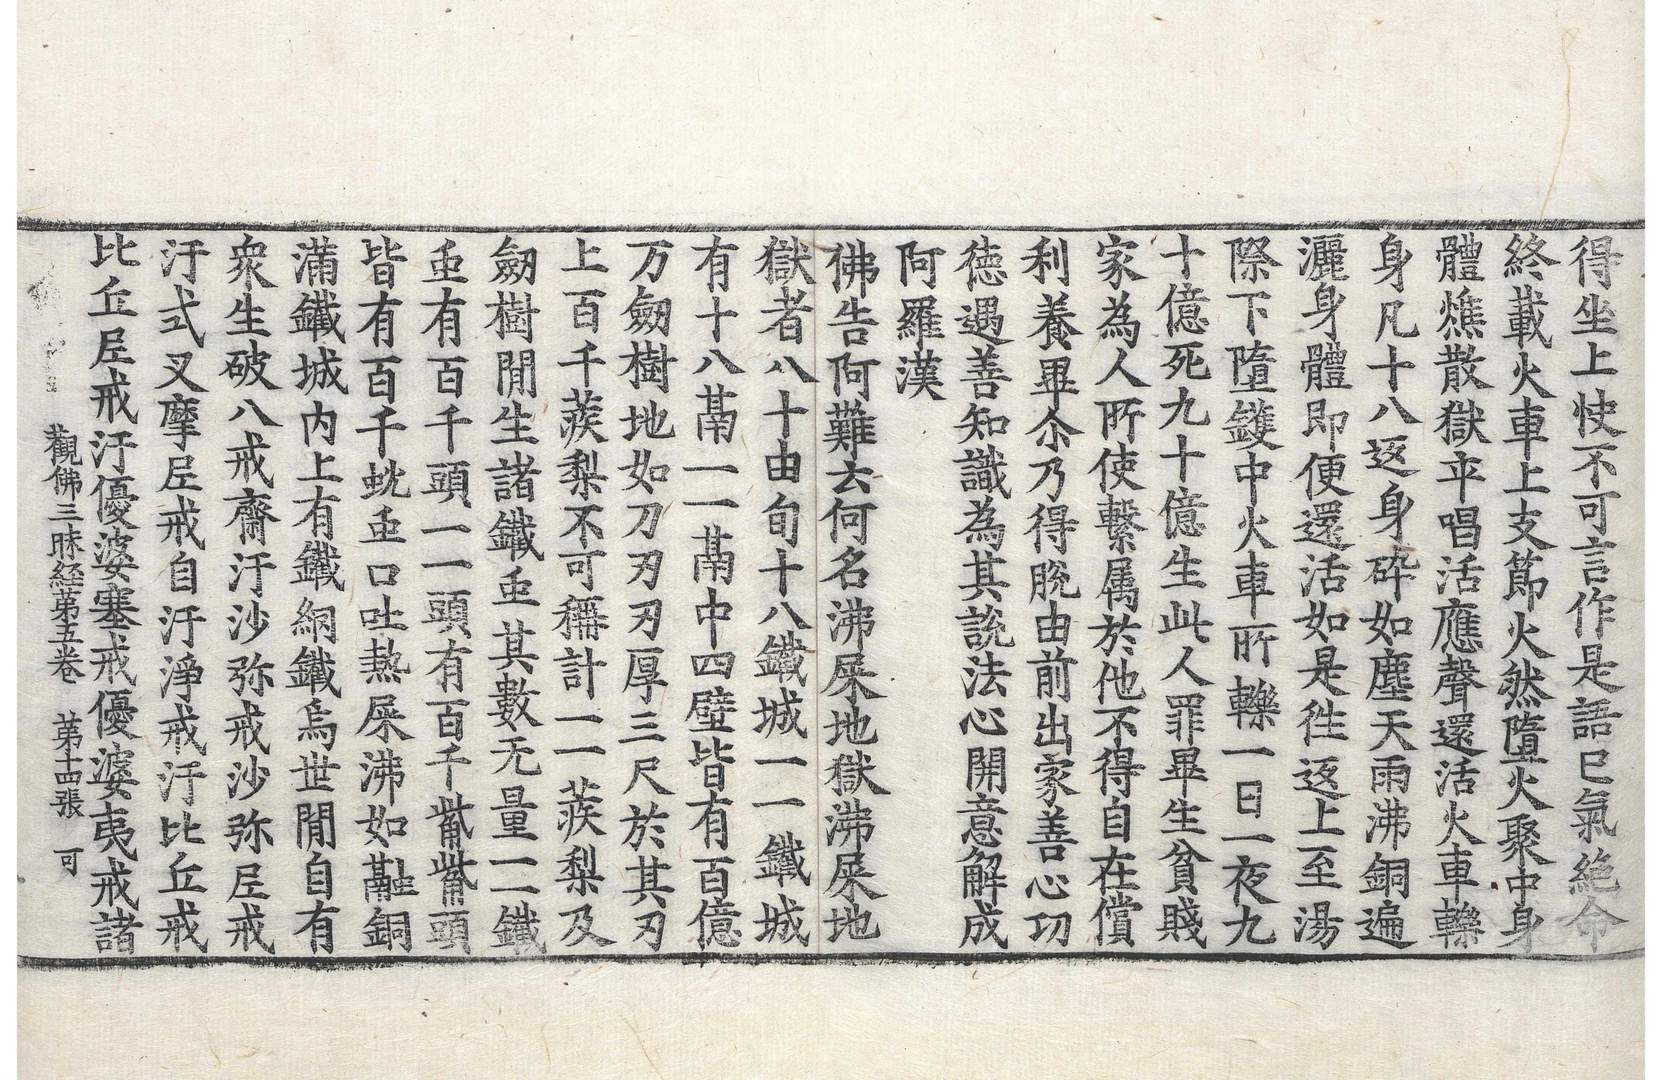 得坐上快不可言作是語已氣絶命
終載火車上支節火然墮火聚中身
體燋散獄卒唱活應聲還活火車轢
身凡十八返身碎如塵天雨沸銅遍
灑身體即便還活如是徃返上至湯
際下墮鑊中火車所轢一日一夜九
十億死九十億生此人罪畢生貧賤
家為人所使繫属於他不得自在償
利養畢尒乃得脫由前出家善心功
徳遇善知識為其說法心開意解成
阿羅漢
佛告阿難云何名沸屎地獄沸屎地
獄者八十由旬十八鐵城一一鐵城
有十八鬲一一鬲中四壁皆有百億
万劒樹地如刀刃刃厚三尺於其刃
上百千蒺梨不可稱計一一蒺梨及
劒樹間生諸鐵䖝其數无量一一鐵
䖝有百千頭一一頭有百千觜觜頭
皆有百千蚘䖝口吐熱屎沸如融銅
滿鐵城内上有鐵網鐵烏世間自有
衆生破八戒齋汙沙弥戒沙弥尼戒
汙式叉摩尼戒自汙淨戒汙比丘戒
比丘尼戒汙優婆塞戒優婆夷戒諸
觀佛三昧経苐五卷 苐十四張 可